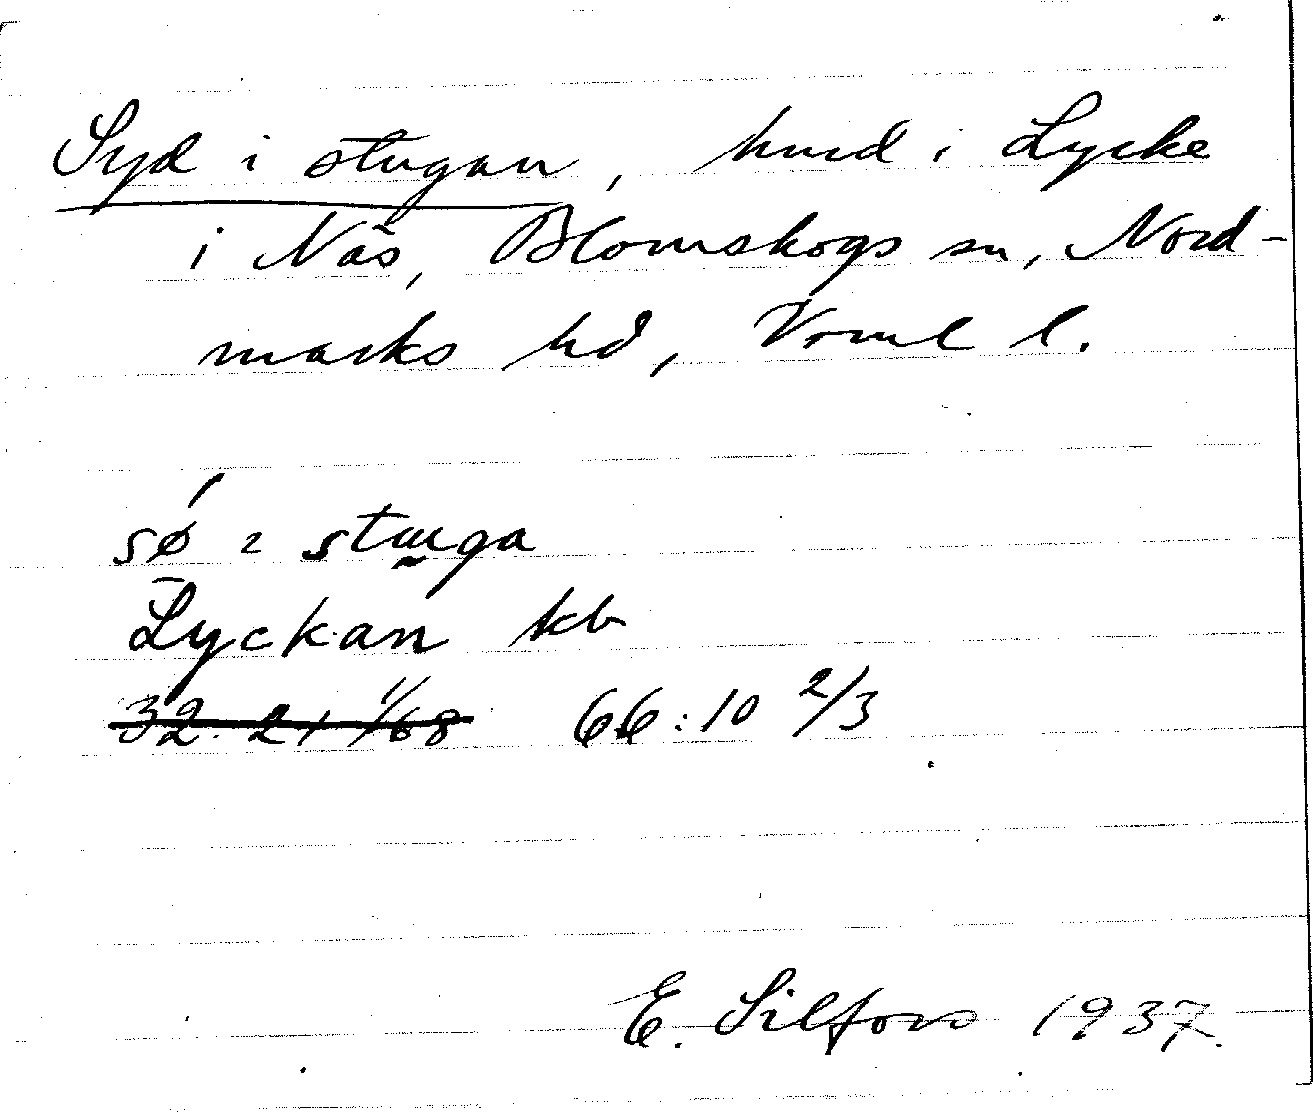 Syd i stugan, hmd i Lycke
i Näs, Blomskogs sn, Nord-
marks hd, Vrml l.
sø ı stɯga
Lyckan kb
32. 21 1/68 66:10 2/3
E. Silfors 1937.